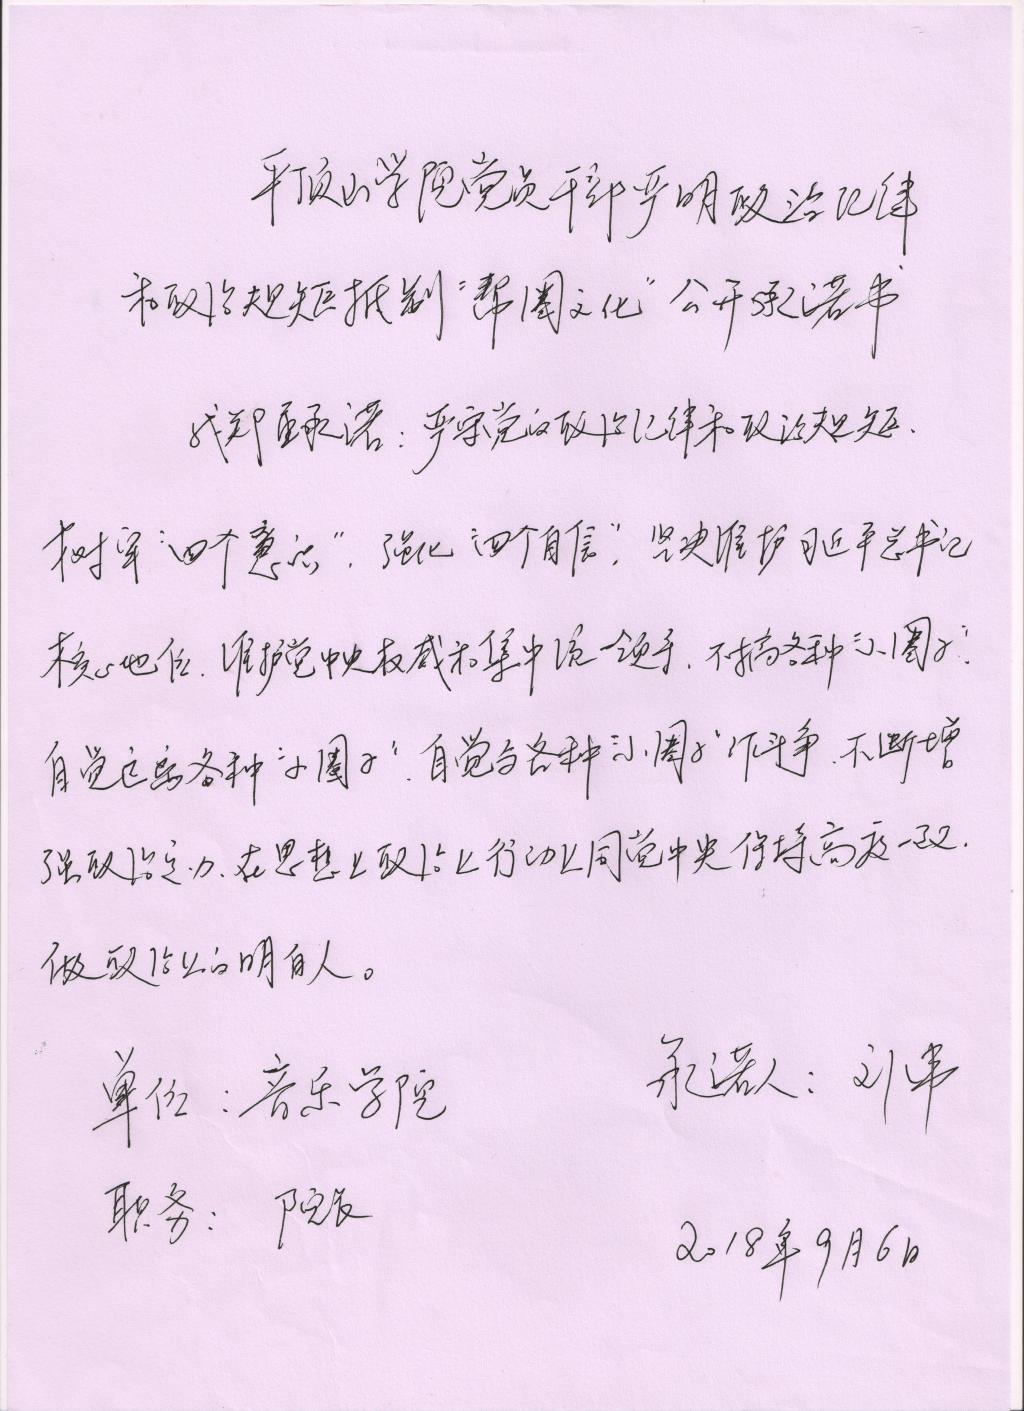 平顶山学院党员干部严明政治纪律
和政治规矩抵制“帮圈文化”公开承诺书
我郑重承诺:严守党的政治纪律和政治规矩.
树牢“四个意识”.强化“四个自信”.坚决维护习近平总书记
核心地位.维护党中央权威和集中统一领导.不搞各种“小圈子”.
自觉远离各种“小圈子”.自觉与各种“小圈子”作斗争.不断增
强政治定力.在思想上政治上行动上同党中央保持高度一致.
做政治上的明白人。
单位:音乐学院
承诺人:刘伟
职务:院长
2018年9月6日